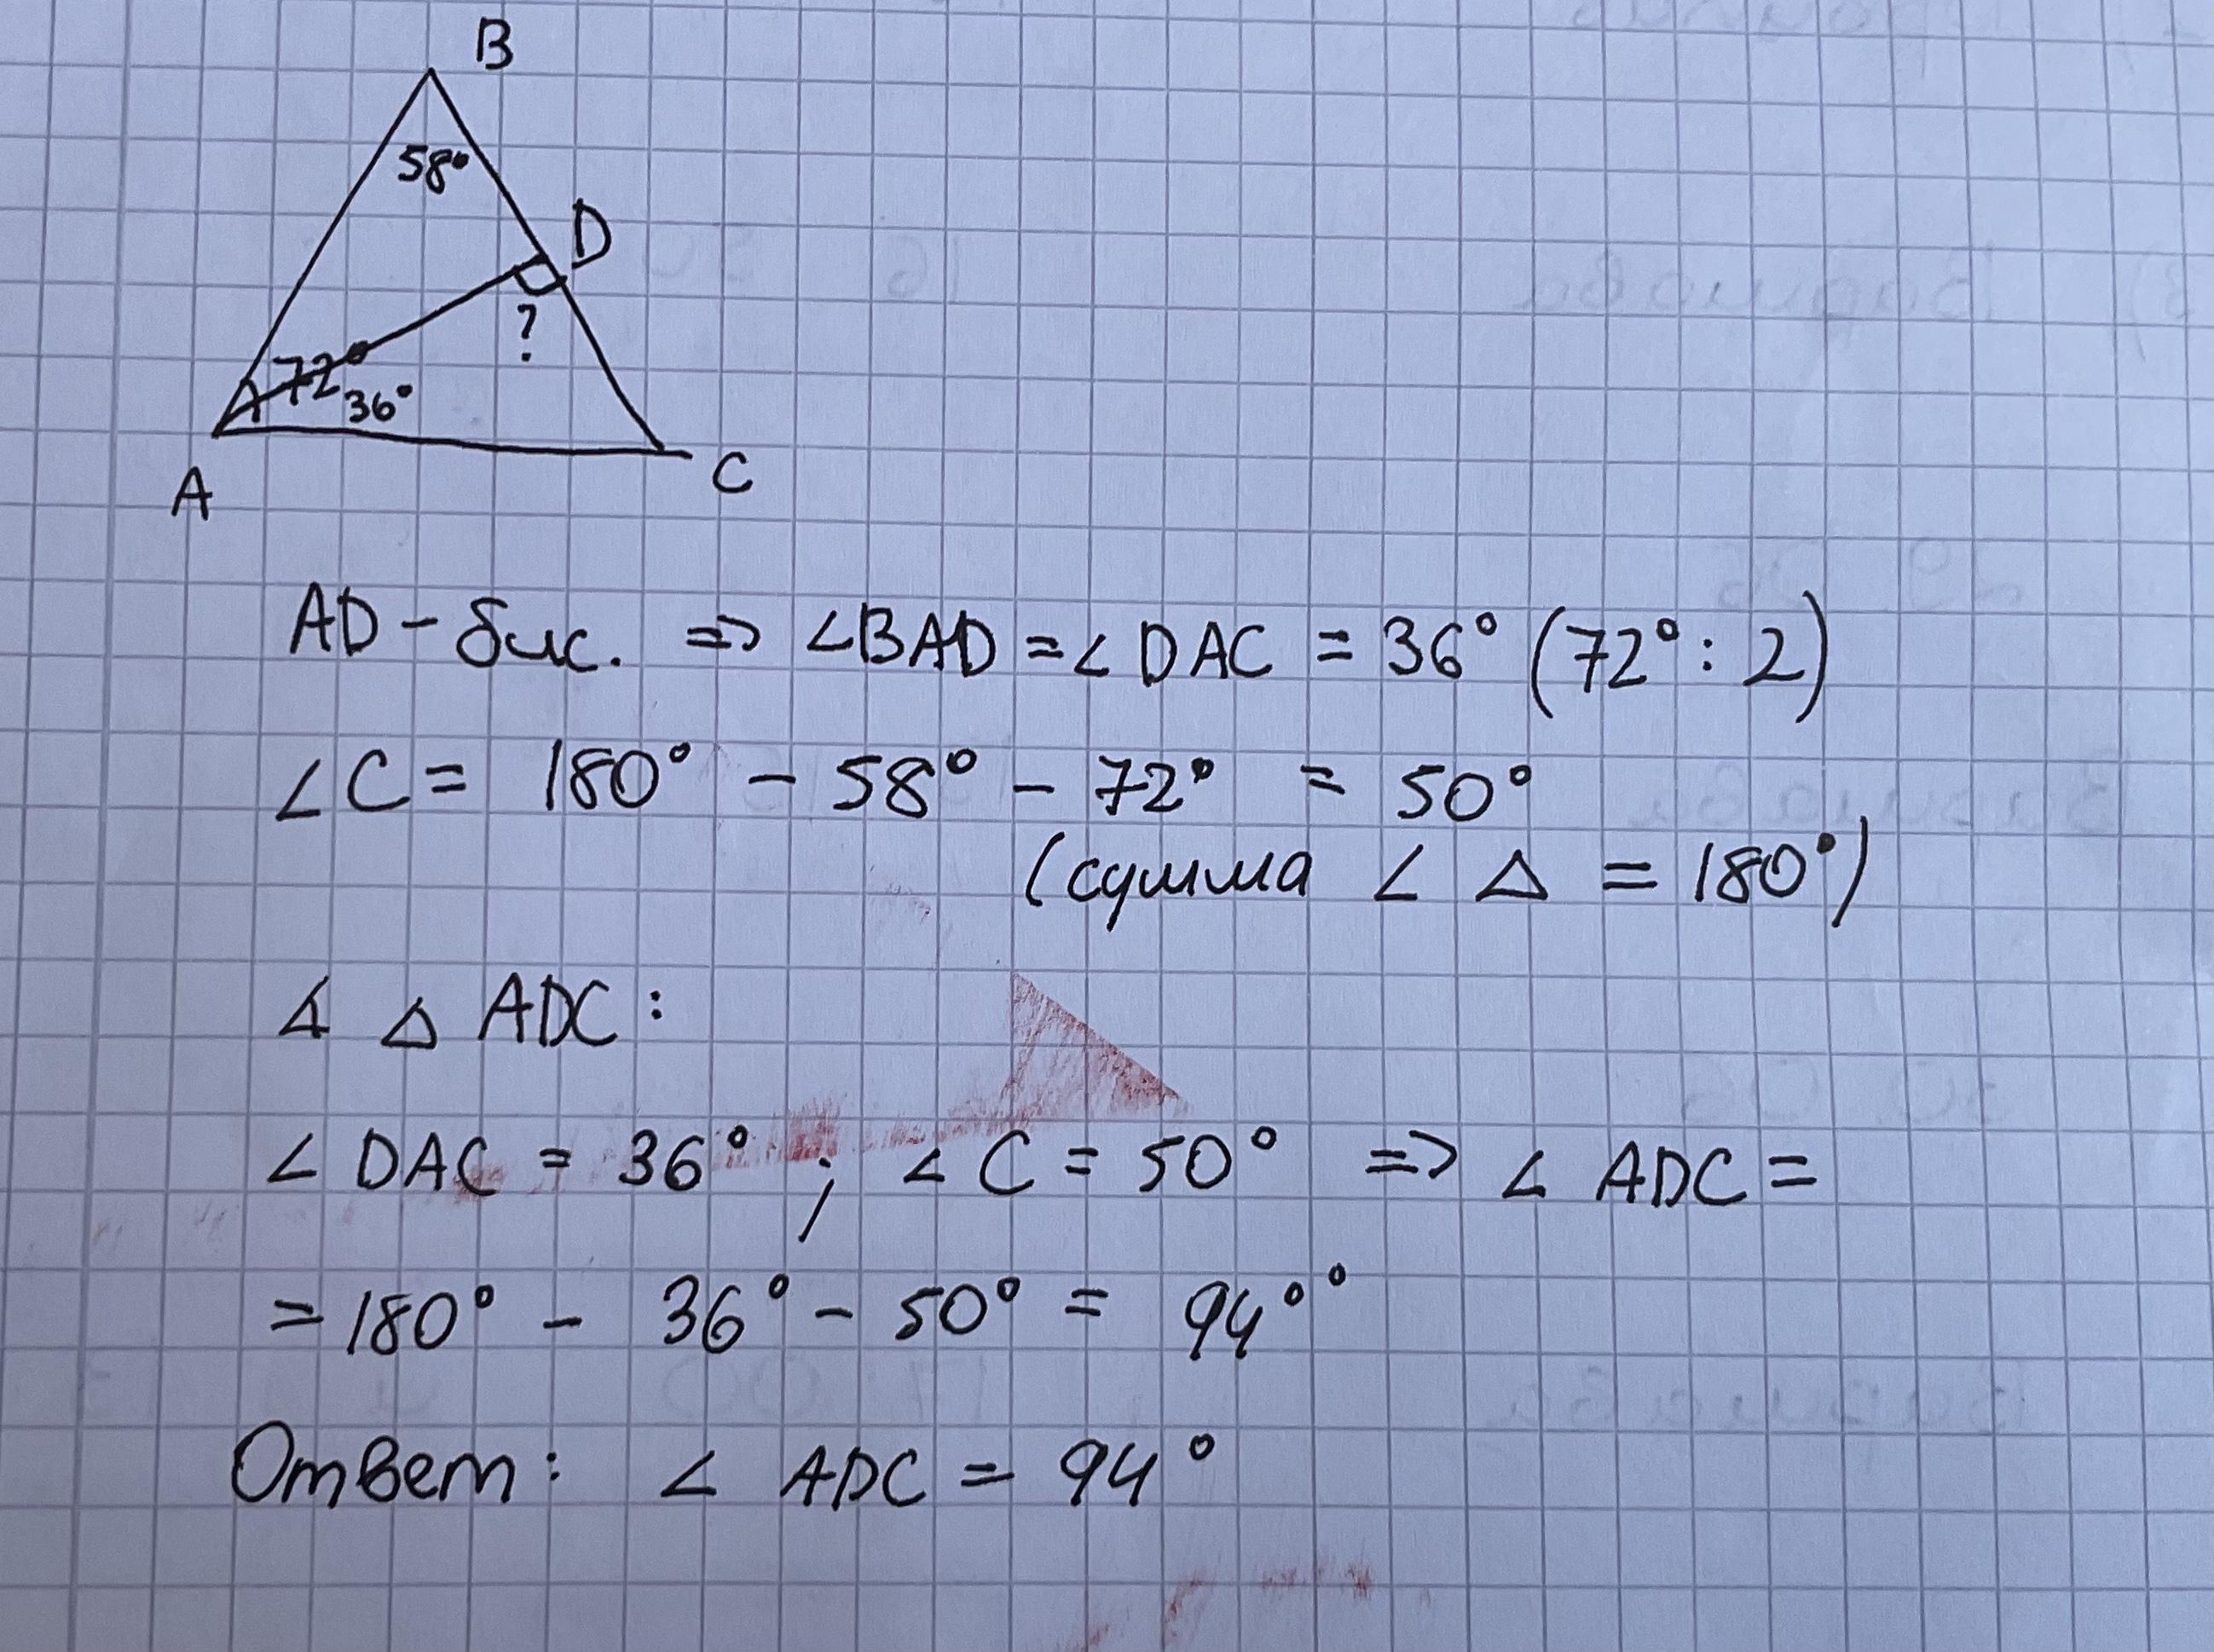 B
58°
D
?
72°
36°
A
C
AD - бис. => ∠BAD = ∠DAC = 36° (72° : 2)
∠C = 180° - 58° - 72° = 50°
(сумма ∠ △ = 180°)
∡ △ ADC:
∠DAC = 36° ; ∠C = 50° => ∠ADC =
= 180° - 36° - 50° = 94°°
Ответ: ∠ ADC = 94°